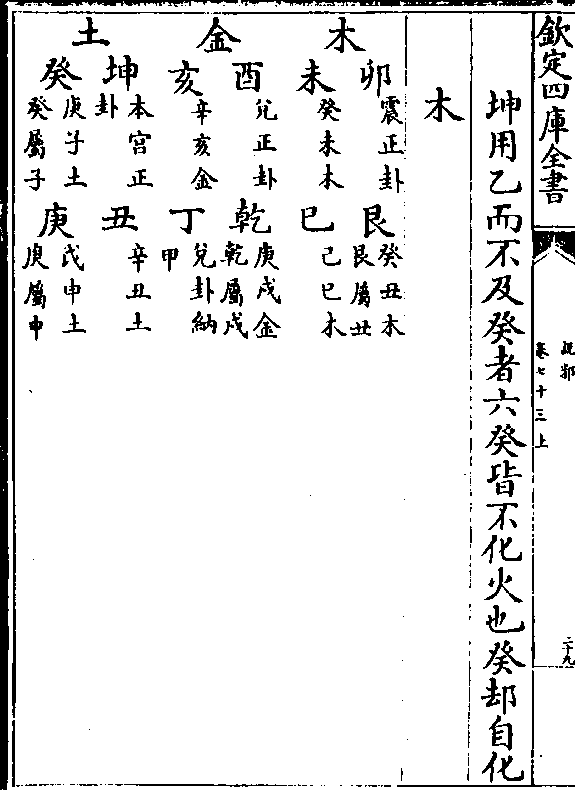 欽定四庫全書
說郛
卷七十三上
二十九
坤用乙而不及癸者六癸皆不化火也癸却自化
木
木
卯 震正卦 艮 癸丑木 艮屬丑
未 癸未木 巳 己巳木
金
酉 兌正卦 乾 庚戌金 乾屬戌
亥 辛亥金 丁 兌卦納甲
土
坤 本宮正卦 丑 辛丑土
癸 庚子土 癸屬子 庚 戊申土 庚屬申